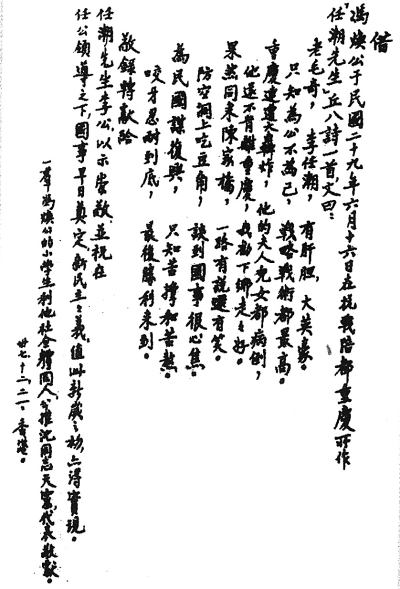 借
馮煥公于民國二十九年六月十六日在抗戰陪都重慶所作
「任潮先生」丘八詩一首，文曰：
老毛奇， 李任潮， 有肝胆， 大英豪。
只知為公不為己， 戰略戰術都最高。
重慶遭遭大轟炸， 他的夫人兒女都病倒，
他還不肯離重慶， 我勸下鄉走走好。
果然同來陳家橋， 一路有說還有笑。
防空洞上吃豆角， 談到國事很心焦。
為民國謀復興， 只知苦撐和苦熬。
咬牙忍耐到底， 最後勝利來到。
敬錄轉獻給
任潮先生李公，以示崇敬，並祝在
任公領導之下，國事早日奠定新民主主義，值此新歲之初，亦得實現。
一羣馮煥公的小學生利他社全體同人，公推沈同志天靈代表敬獻。
卅七、十二、二一。香港。